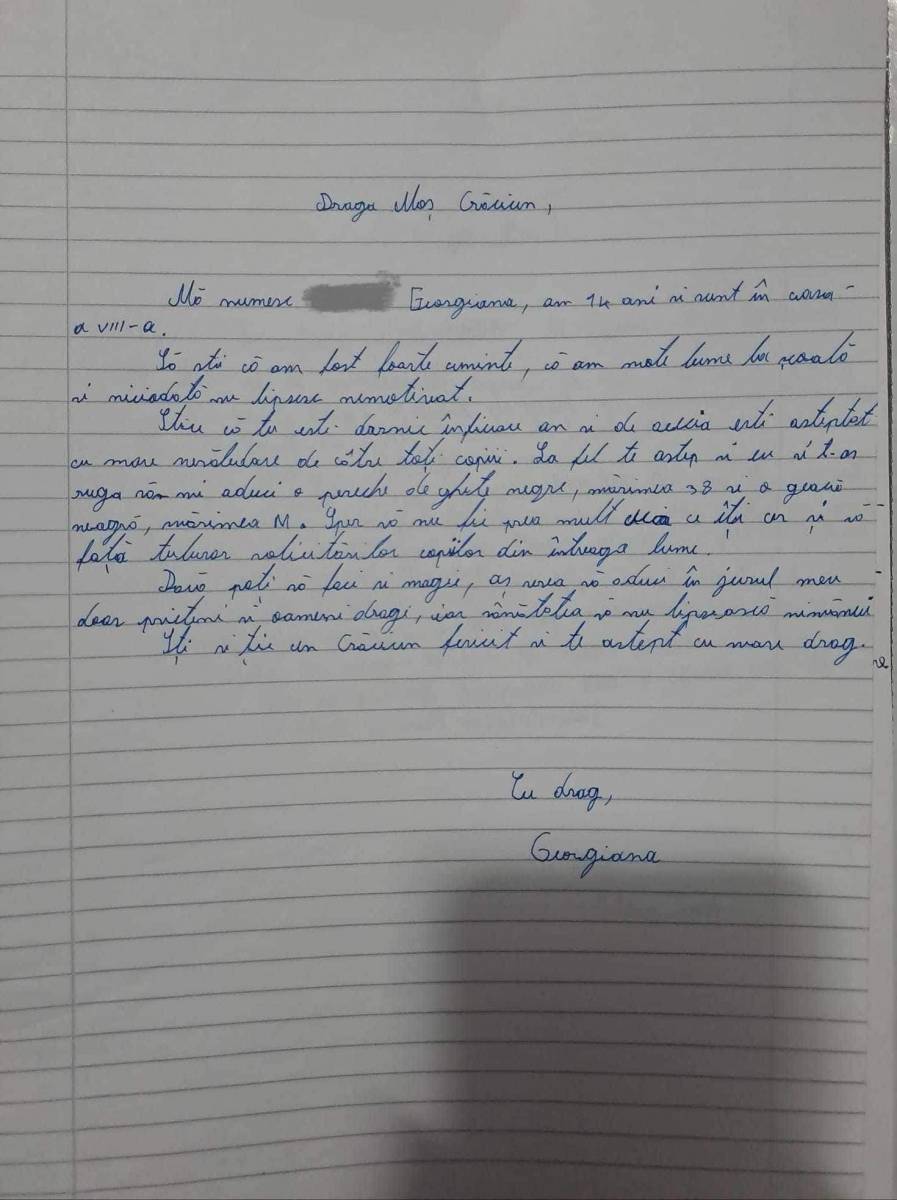 Draga Moș Crăciun,
Mă numesc Georgiana, am 14 ani si sunt în clasa
a VIII-a.
Să stii că am fost foarte cuminte, că am note bune la școală
si niciodată nu lipsesc nemotivat.
Stiu că tu esti darnic înfiecare an si de aceeia esti asteptat
cu mare nerăbdare de către toți copiii. La fel te astep si eu si te-as
ruga să-mi aduci o pereche de ghete negre, mărimea 38 si o geacă
neagră, mărimea M. Sper să nu fie prea mult ceea ce îți cer și să
față tuturor solicitărilor copiilor din întreaga lume.
Dacă poți să faci si magie, aș vrea să aduci în jurul meu
doar prieteni si oameni dragi, iar sănătatea să nu lipsească nimănui
Îți si ție un Crăciun fericit si te astept cu mare drag.
Cu drag,
Georgiana